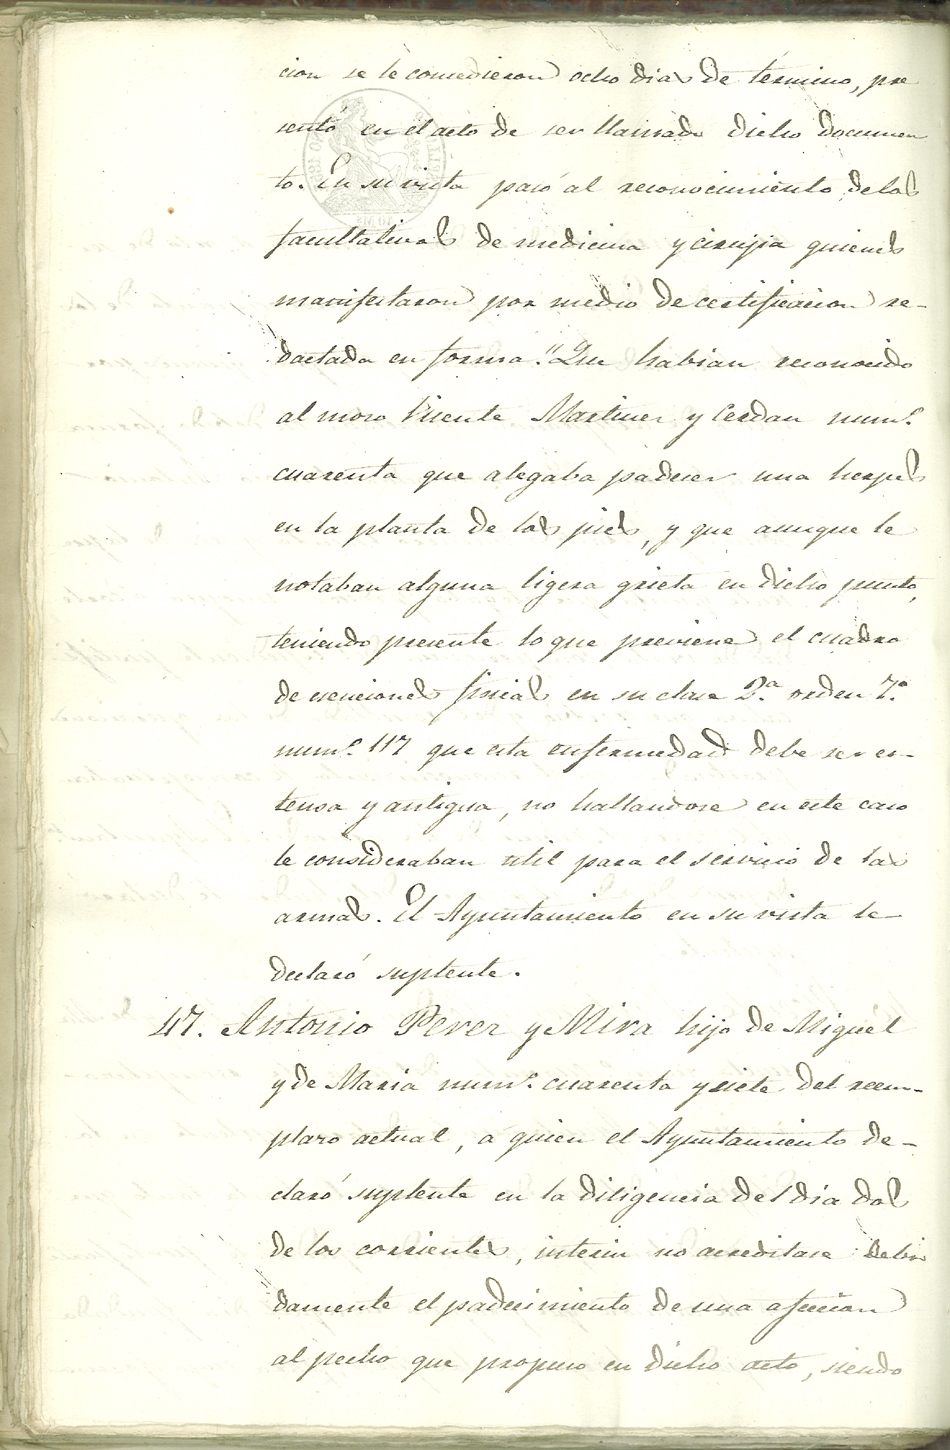 cion se le concedieron ocho dias de término, pre
sentó en el acto de ser llamado dicho documen
to. En su vista pasó al reconocimiento de los
facultativos de medicina y cirujia quienes
manifestaron por medio de certificacion re-
dactada en forma "Que habian reconocido
al mozo Vicente Martinez y Cerdan num.º
cuarenta que alegaba padecer una herpes
en la planta de los pies, y que aunque le
notaban alguna ligera grieta en dicho punto,
teniendo presente lo que previene el cuadro
de esenciones fisicas en su clase 2.ª orden 7.º
num.º 117 que esta enfermedad debe ser es-
tensa y antigua, no hallandose en este caso
le consideraban util para el servicio de las
armas. El Ayuntamiento en su vista le
declaró suplente.
47. Antonio Perez y Mira hijo de Miguel
y de Maria num.º cuarenta y siete del reem-
plazo actual, a quien el Ayuntamiento de-
claró suplente en la diligencia del dia dos
de los corrientes, interin no acreditase debi
damente el padecimiento de una afeccion
al pecho que propuso en dicho acto, siendo